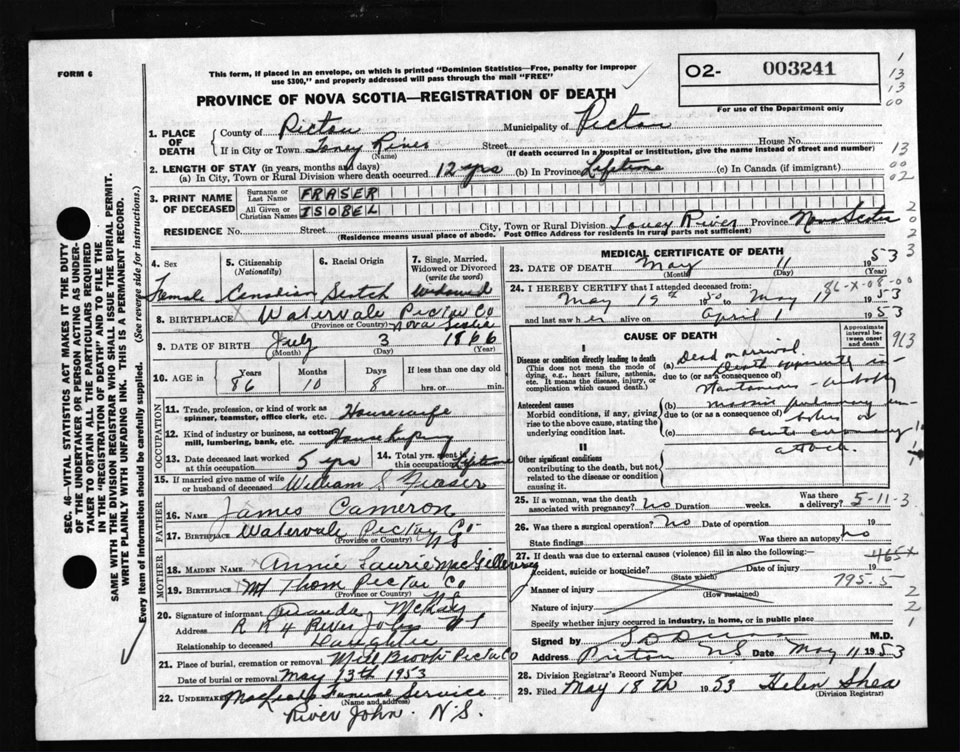 FORM 6
This form, if placed in an envelope, on which is printed "Dominion Statistics—Free, penalty for improper
use $300," and properly addressed will pass through the mail "FREE"
PROVINCE OF NOVA SCOTIA—REGISTRATION OF DEATH
O2- 003241
For use of the Department only
1
13
13
00
13
00
02
2
0
2
3
1. PLACE OF DEATH { County of Pictou Municipality of Pictou
If in City or Town Toney River Street House No.
(Name) (If death occurred in a hospital or institution, give the name instead of street and number)
2. LENGTH OF STAY (in years, months and days)
(a) In City, Town or Rural Division where death occurred 12 yrs (b) In Province Lifetime (c) In Canada (if immigrant)
3. PRINT NAME OF DECEASED { Surname or Last Name FRASER
All Given or Christian Names ISOBEL
RESIDENCE No. Street City, Town or Rural Division Toney River Province Nova Scotia
(Residence means usual place of abode. Post Office Address for residents in rural parts not sufficient)
SEC. 46—VITAL STATISTICS ACT MAKES IT THE DUTY
OF THE UNDERTAKER OR PERSON ACTING AS UNDER-
TAKER TO OBTAIN ALL THE PARTICULARS REQUIRED
IN THE "REGISTRATION OF DEATH" AND TO FILE THE
SAME WITH THE DIVISION REGISTRAR WHO SHALL ISSUE THE BURIAL PERMIT.
WRITE PLAINLY WITH UNFADING INK. THIS IS A PERMANENT RECORD.
Every item of information should be carefully supplied. (See reverse side for instructions.)
4. Sex 5. Citizenship (Nationality) 6. Racial Origin 7. Single, Married, Widowed or Divorced (write the word)
Female Canadian Scotch Widowed
8. BIRTHPLACE Watervale Pictou Co
(Province or Country) Nova Scotia
9. DATE OF BIRTH July 3 1866
(Month) (Day) (Year)
10. AGE in Years Months Days If less than one day old
86 10 8 hrs. or min.
OCCUPATION
11. Trade, profession, or kind of work as spinner, teamster, office clerk, etc. Housewife
12. Kind of industry or business, as cotton mill, lumbering, bank, etc. House Keeping
13. Date deceased last worked at this occupation 5 yrs 14. Total yrs. spent in this occupation Lifetime
15. If married give name of wife or husband of deceased William S Fraser
FATHER
16. NAME James Cameron
17. BIRTHPLACE Watervale Pictou Co NS
(Province or Country)
MOTHER
18. MAIDEN NAME Annie Laurie MacGillivray
19. BIRTHPLACE Mt Thom Pictou Co
(Province or Country) NS
20. Signature of informant McKay
Address RR4 River John NS
Relationship to deceased Daughter
21. Place of burial, cremation or removal Mill Brook Pictou Co
Date of burial or removal May 13th 1953
22. UNDERTAKER MacLeods Funeral Service
(Name and address)
River John. N.S.
MEDICAL CERTIFICATE OF DEATH
23. DATE OF DEATH May 11 1953
(Month) (Day) (Year)
24. I HEREBY CERTIFY that I attended deceased from:
86-X-08-00
May 19th 1950 to May 19 1953
and last saw her alive on April 1 1953
CAUSE OF DEATH
Approximate interval between onset and death
963
I
Disease or condition directly leading to death
(This does not mean the mode of dying, e.g., heart failure, asthenia, etc. It means the disease, injury, or complication which caused death.)
(a) Dead on arrival.
Death apparently in-
due to (or as a consequence of)
stantaneous - probably
Antecedent causes
Morbid conditions, if any, giving rise to the above cause, stating the underlying condition last.
(b) massive pulmonary em-
due to (or as a consequence of)
bolus or
(c) acute coronary
attack.
II
Other significant conditions
contributing to the death, but not related to the disease or condition causing it.
25. If a woman, was the death associated with pregnancy? no Duration weeks. Was there a delivery? 5-11-3
26. Was there a surgical operation? No Date of operation 19
State findings Was there an autopsy? no
27. If death was due to external causes (violence) fill in also the following:
465X
Accident, suicide or homicide? Date of injury 19
(State which) 795-5
Manner of injury
(How sustained)
Nature of injury
Specify whether injury occurred in industry, in home, or in public place
Signed by M.D.
Address Pictou NS Date May 11 1953
28. Division Registrar's Record Number
29. Filed May 18th 1953 Helen Shea
(Division Registrar)